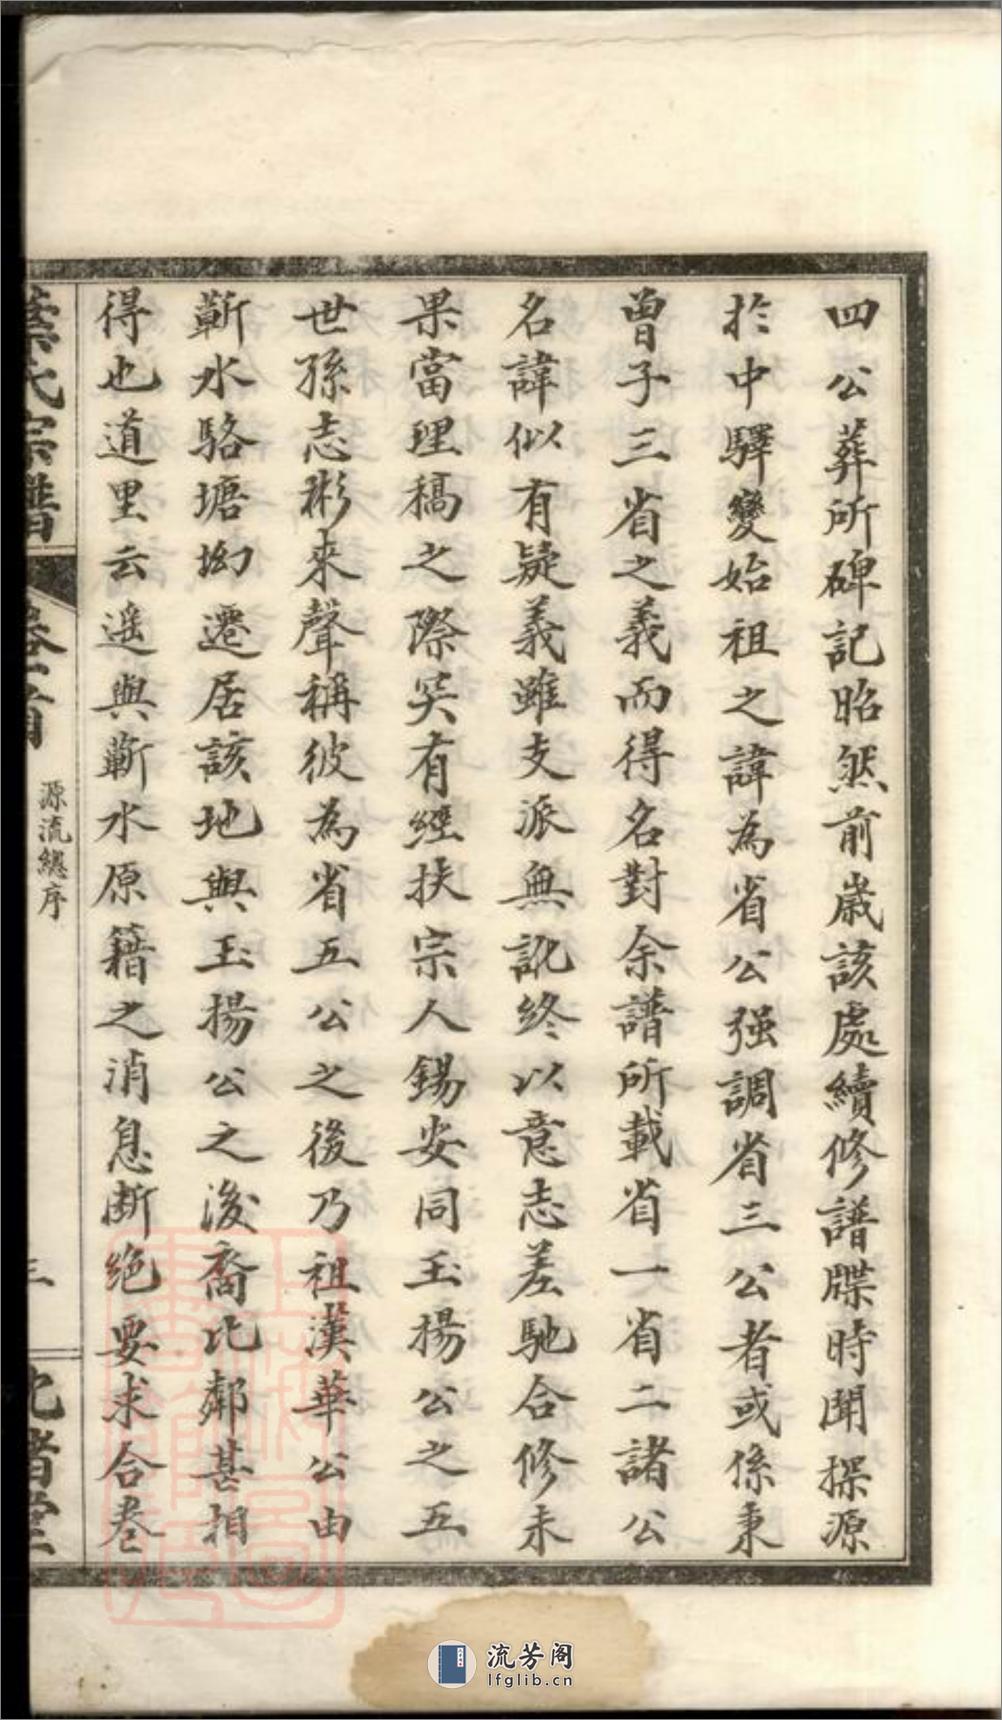 四公葬所碑記昭然前歲該處續修譜牒時聞探源
於中驛變始祖之諱為省公强調省三公者或係秉
曾子三省之義而得名對余譜所載省一省二諸公
名諱似有疑義雖支派無訛終以意志差馳合修未
果當理稿之際笑有經扶宗人錫安同玉揚公之五
世孫志彬來聲稱彼為省五公之後乃祖漢華公由
蘄水駱塘坳遷居該地與玉揚公之後裔比鄰甚相
得也道里云遥與蘄水原籍之消息断絶要求合卷
氏宗譜
源流總序
流芳阁
lfglib.cn